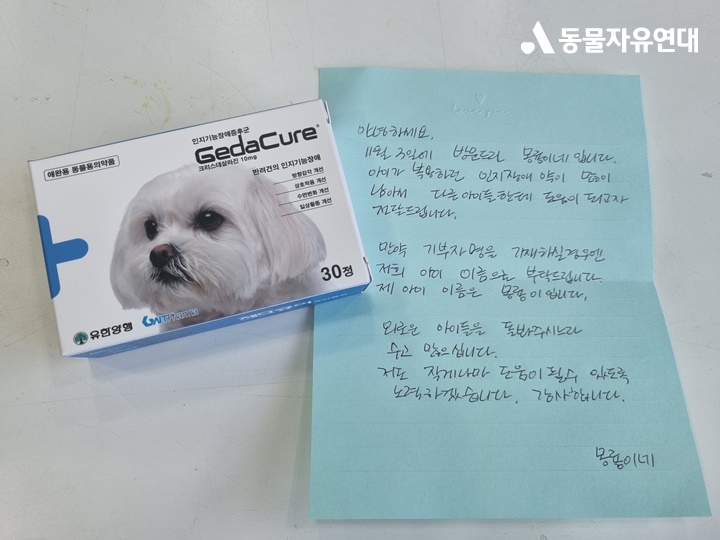 동물자유연대
애완용 동물용의약품
인지기능장애증후군
GedaCure
크리스데살라진 10mg
반려견의 인지기능장애
방향감각 개선
상호작용 개선
수면변화 개선
일상활동 개선
30정
유한양행
GNTPharma
안녕하세요.
11월 3일에 방문드린 몽룡이네 입니다.
아이가 복용하던 인지장애 약이 많이
남아서 다른 아이들한테 도움이 되고자
전달드립니다.
만약 기부자명을 기재하실경우엔
저희 아이 이름으로 부탁드립니다.
제 아이 이름은 몽룡이 입니다.
외로운 아이들을 돌봐주시느라
수고 많으십니다.
저도 작게나마 도움이 될수 있도록
노력하겠습니다. 감사합니다.
몽룡이네